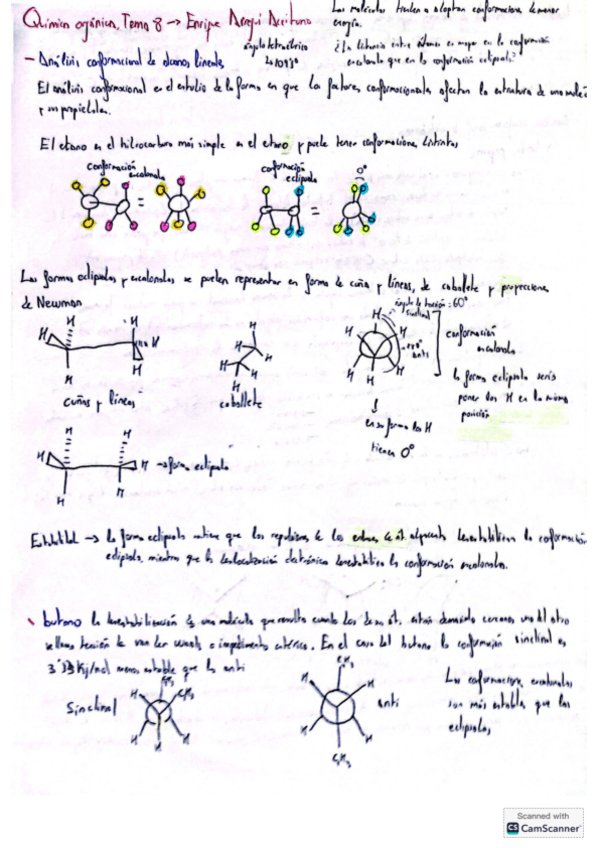 Química orgánica, Tema 8 → Enrique Aregui Aceituno
Las moléculas tienden a adoptar conformaciones de menor
energía.
ángulo tetraédrico
¿La distancia entre átomos es mayor en la conformación
escalonada que en la conformación eclipsada?
- Análisis conformacional de alcanos lineales
El análisis conformacional es el estudio de la forma en que los factores conformacionales afectan la estructura de una molécula
y sus propiedades.
El etano es el hidrocarburo más simple es el etano y puede tener conformaciones distintas
conformación
escalonada
=
conformación
eclipsada
=
0°
Las formas eclipsadas y escalonadas se pueden representar en forma de cuñas y líneas, de caballete y proyecciones
de Newman
ángulo de torsión: 60°
sinclinal
H
H
H
H
H
H
cuñas y líneas
H
H
H
H
H
caballete
H
H
H
H
H
H
180°
anti
conformación
escalonada
la forma eclipsada sería
poner los H en la misma
posición
en su forma los H
tienen 0°
H
H
H
H
H
H → forma eclipsada
Estabilidad → la forma eclipsada sostiene que las repulsiones de los enlaces de át. adyacentes desestabilizan la conformación
eclipsada, mientras que la deslocalización electrónica estabiliza la conformación escalonada.
butano la desestabilización de una molécula que resulta cuando los dos át. están demasiado cercanos uno del otro
se llama tensión de van der waals o impedimento estérico. En el caso del butano, la conformación sinclinal es
3'3 Kj/mol menos estable que la anti
Sinclinal
CH3
H
CH3
H
H
H
CH3
H
H
H
H
CH3
anti
Las conformaciones escalonadas
son más estables que las
eclipsadas
Scanned with
CS CamScanner